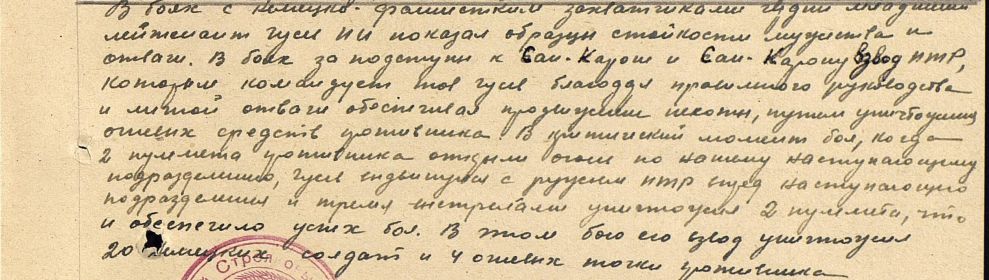 В боях с немецко-фашистскими захватчиками гвардии младший
лейтенант Гусев ИИ показал образцы стойкости мужества и
отваги. В боях за подступы к Сан-Карош и Сан-Карош взвод ПТР,
которым командует тов Гусев благодря правильного руководства
и личной отваги обеспечивал продвижение пехоты, путем уничтожения
огневых средств противника. В критический момент боя, когда
2 пулмета противника открыли огонь по нашему наступающему
подразделению, Гусев выдвинулся с ружьем ПТР перед наступающего
подразделения и тремя выстрелами уничтожил 2 пулмета, что
и обеспечило успех боя. В этом бою его взвод уничтожил
20 немецких солдат и 4 огневых точки противника
Стрел